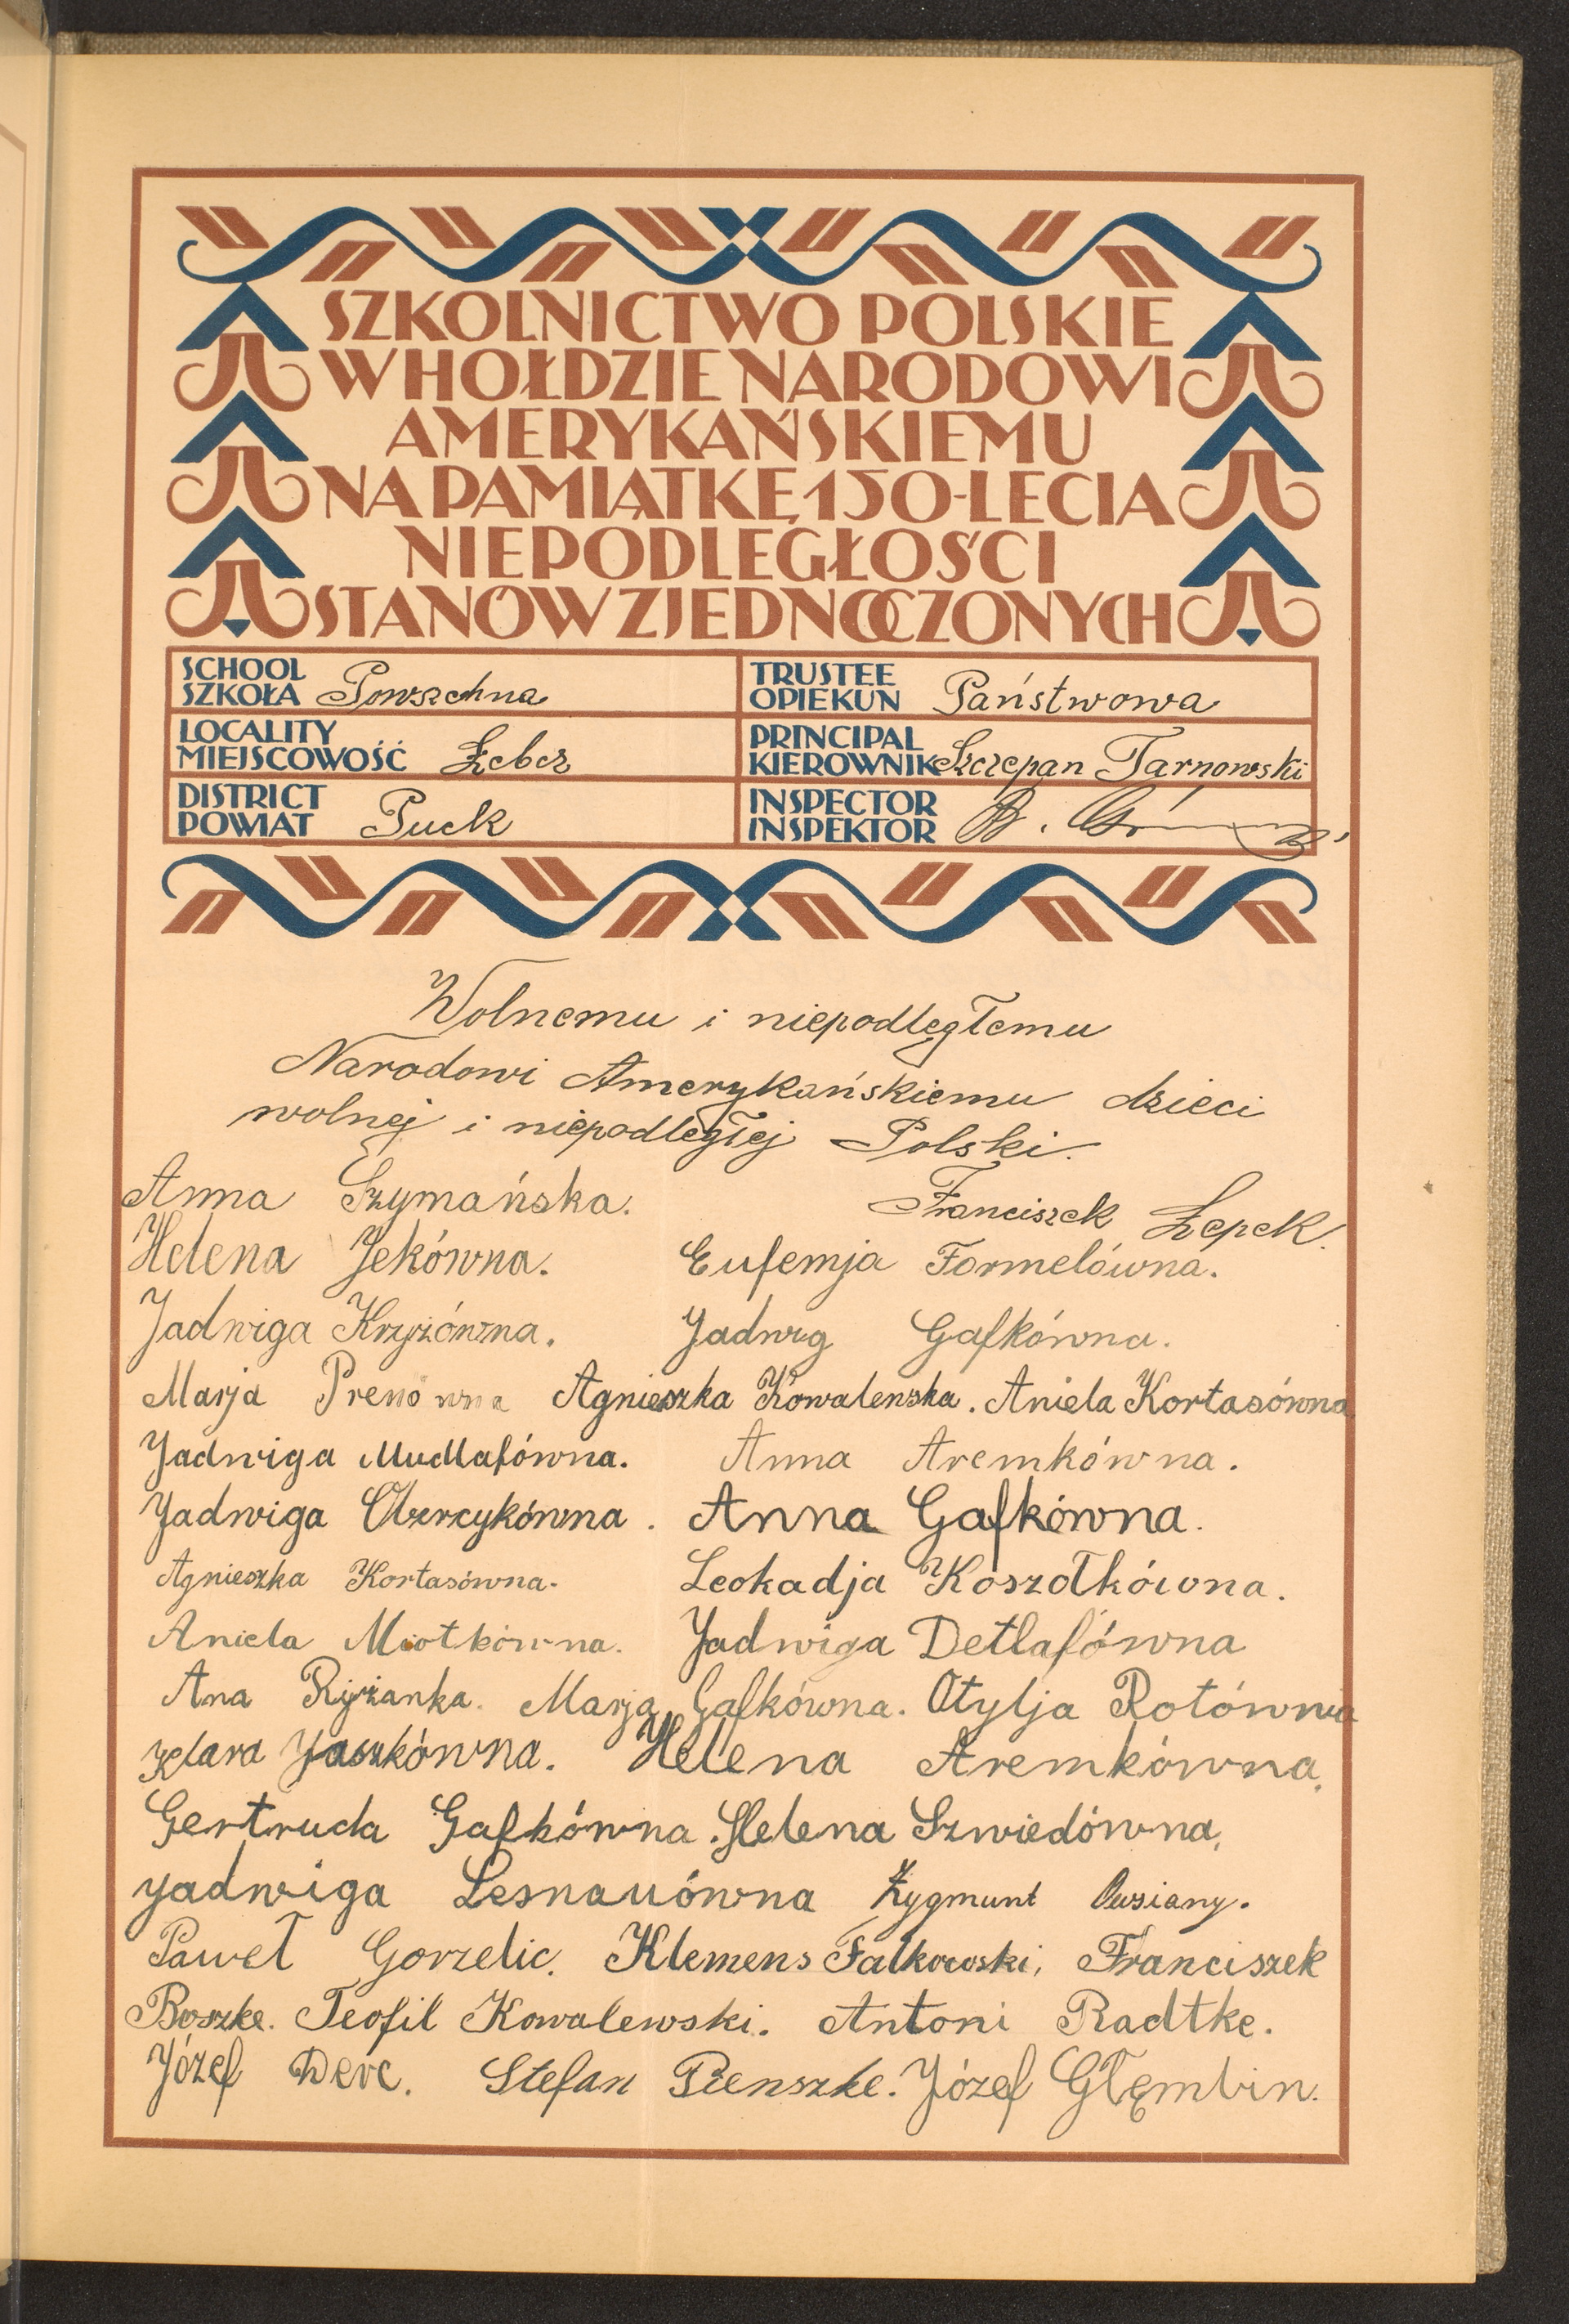 SZKOLNICTWO POLSKIE
W HOŁDZIE NARODOWI
AMERYKAŃSKIEMU
NA PAMIĄTKĘ 150-LECIA
NIEPODLEGŁOŚCI
STANÓW ZJEDNOCZONYCH
SCHOOL
SZKOŁA Powszechna
TRUSTEE
OPIEKUN Państwowa
LOCALITY
MIEJSCOWOŚĆ Łebcz
PRINCIPAL
KIEROWNIK Szczepan Tarnowski
DISTRICT
POWIAT Puck
INSPECTOR
INSPEKTOR B.
Wolnemu i niepodległemu
Narodowi Amerykańskiemu dzieci
wolnej i niepodległej Polski.
Anna Szymańska. Franciszek Łepek.
Helena Jekówna. Eufemja Formelówna.
Jadwiga Krzyżówna. Jadwig Gafkówna.
Marja Prenówna Agnieszka Kowalewska. Aniela Kortasówna
Jadwiga Mudlafówna. Anna Aremkówna.
Jadwiga Anna Gafkówna.
Agnieszka Kortasówna. Leokadja Koszołkówna.
Aniela Miotkówna. Jadwiga Detlafówna
Ana Ryżanka. Marja Gafkówna. Otylja Rotówna
Klara Jaszkówna. Helena Aremkówna,
Gertruda Gafkówna. Helena Szwiedówna,
Jadwiga Lesnauówna Zygmunt Owsiany.
Paweł Gorzelic. Klemens Falkowski, Franciszek
Roszke. Teofil Kowalewski. Antoni Radtke.
Józef Derc. Stefan Pienszke. Józef Głęmbin.